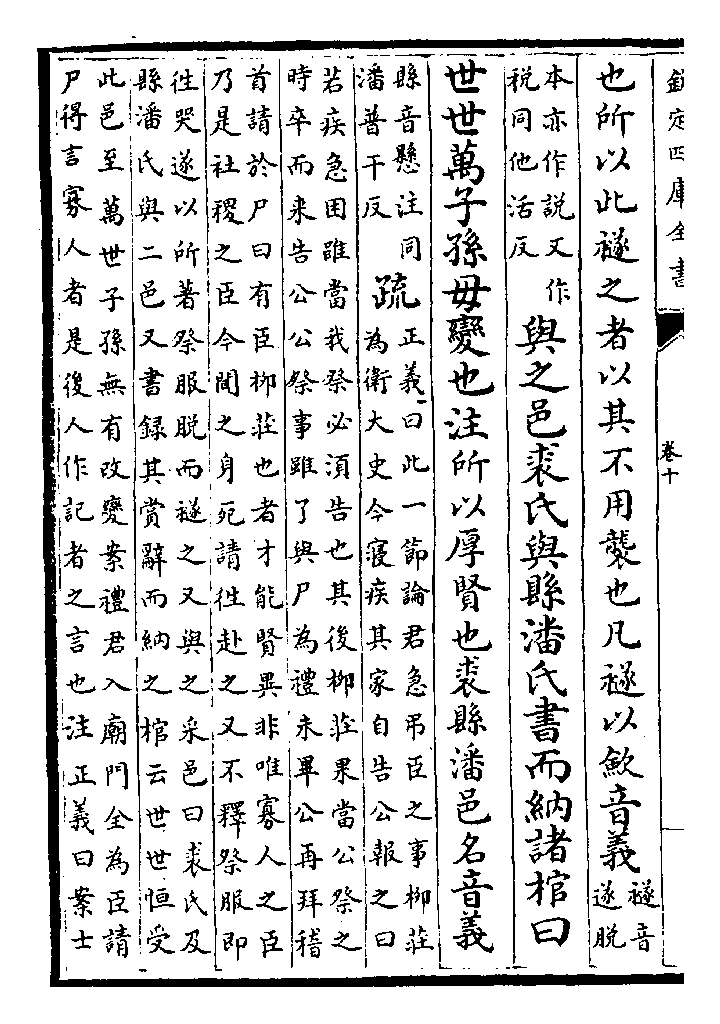 欽定四庫全書
卷十
也所以此襚之者以其不用襲也凡襚以斂音義襚音
遂脫
本亦作説又作
税同他活反
與之邑裘氏與縣潘氏書而納諸棺曰
世世萬子孫毋變也注所以厚賢也裘縣潘邑名音義
縣音懸注同
潘普干反
疏
正義曰此一節論君急弔臣之事柳莊
為衛大史今寢疾其家自告公報之曰
若疾急困雖當我祭必須告也其後柳莊果當公祭之
時卒而来告公公祭事雖了與尸為禮未畢公再拜稽
首請於尸曰有臣柳莊也者才能賢異非唯寡人之臣
乃是社稷之臣今聞之身死請徃赴之又不釋祭服即
徃哭遂以所著祭服脱而襚之又與之采邑曰裘氏及
縣潘氏與二邑又書録其賞辭而納之棺云世世恒受
此邑至萬世子孫無有改變案禮君入廟門全為臣請
尸得言寡人者是後人作記者之言也注正義曰案士